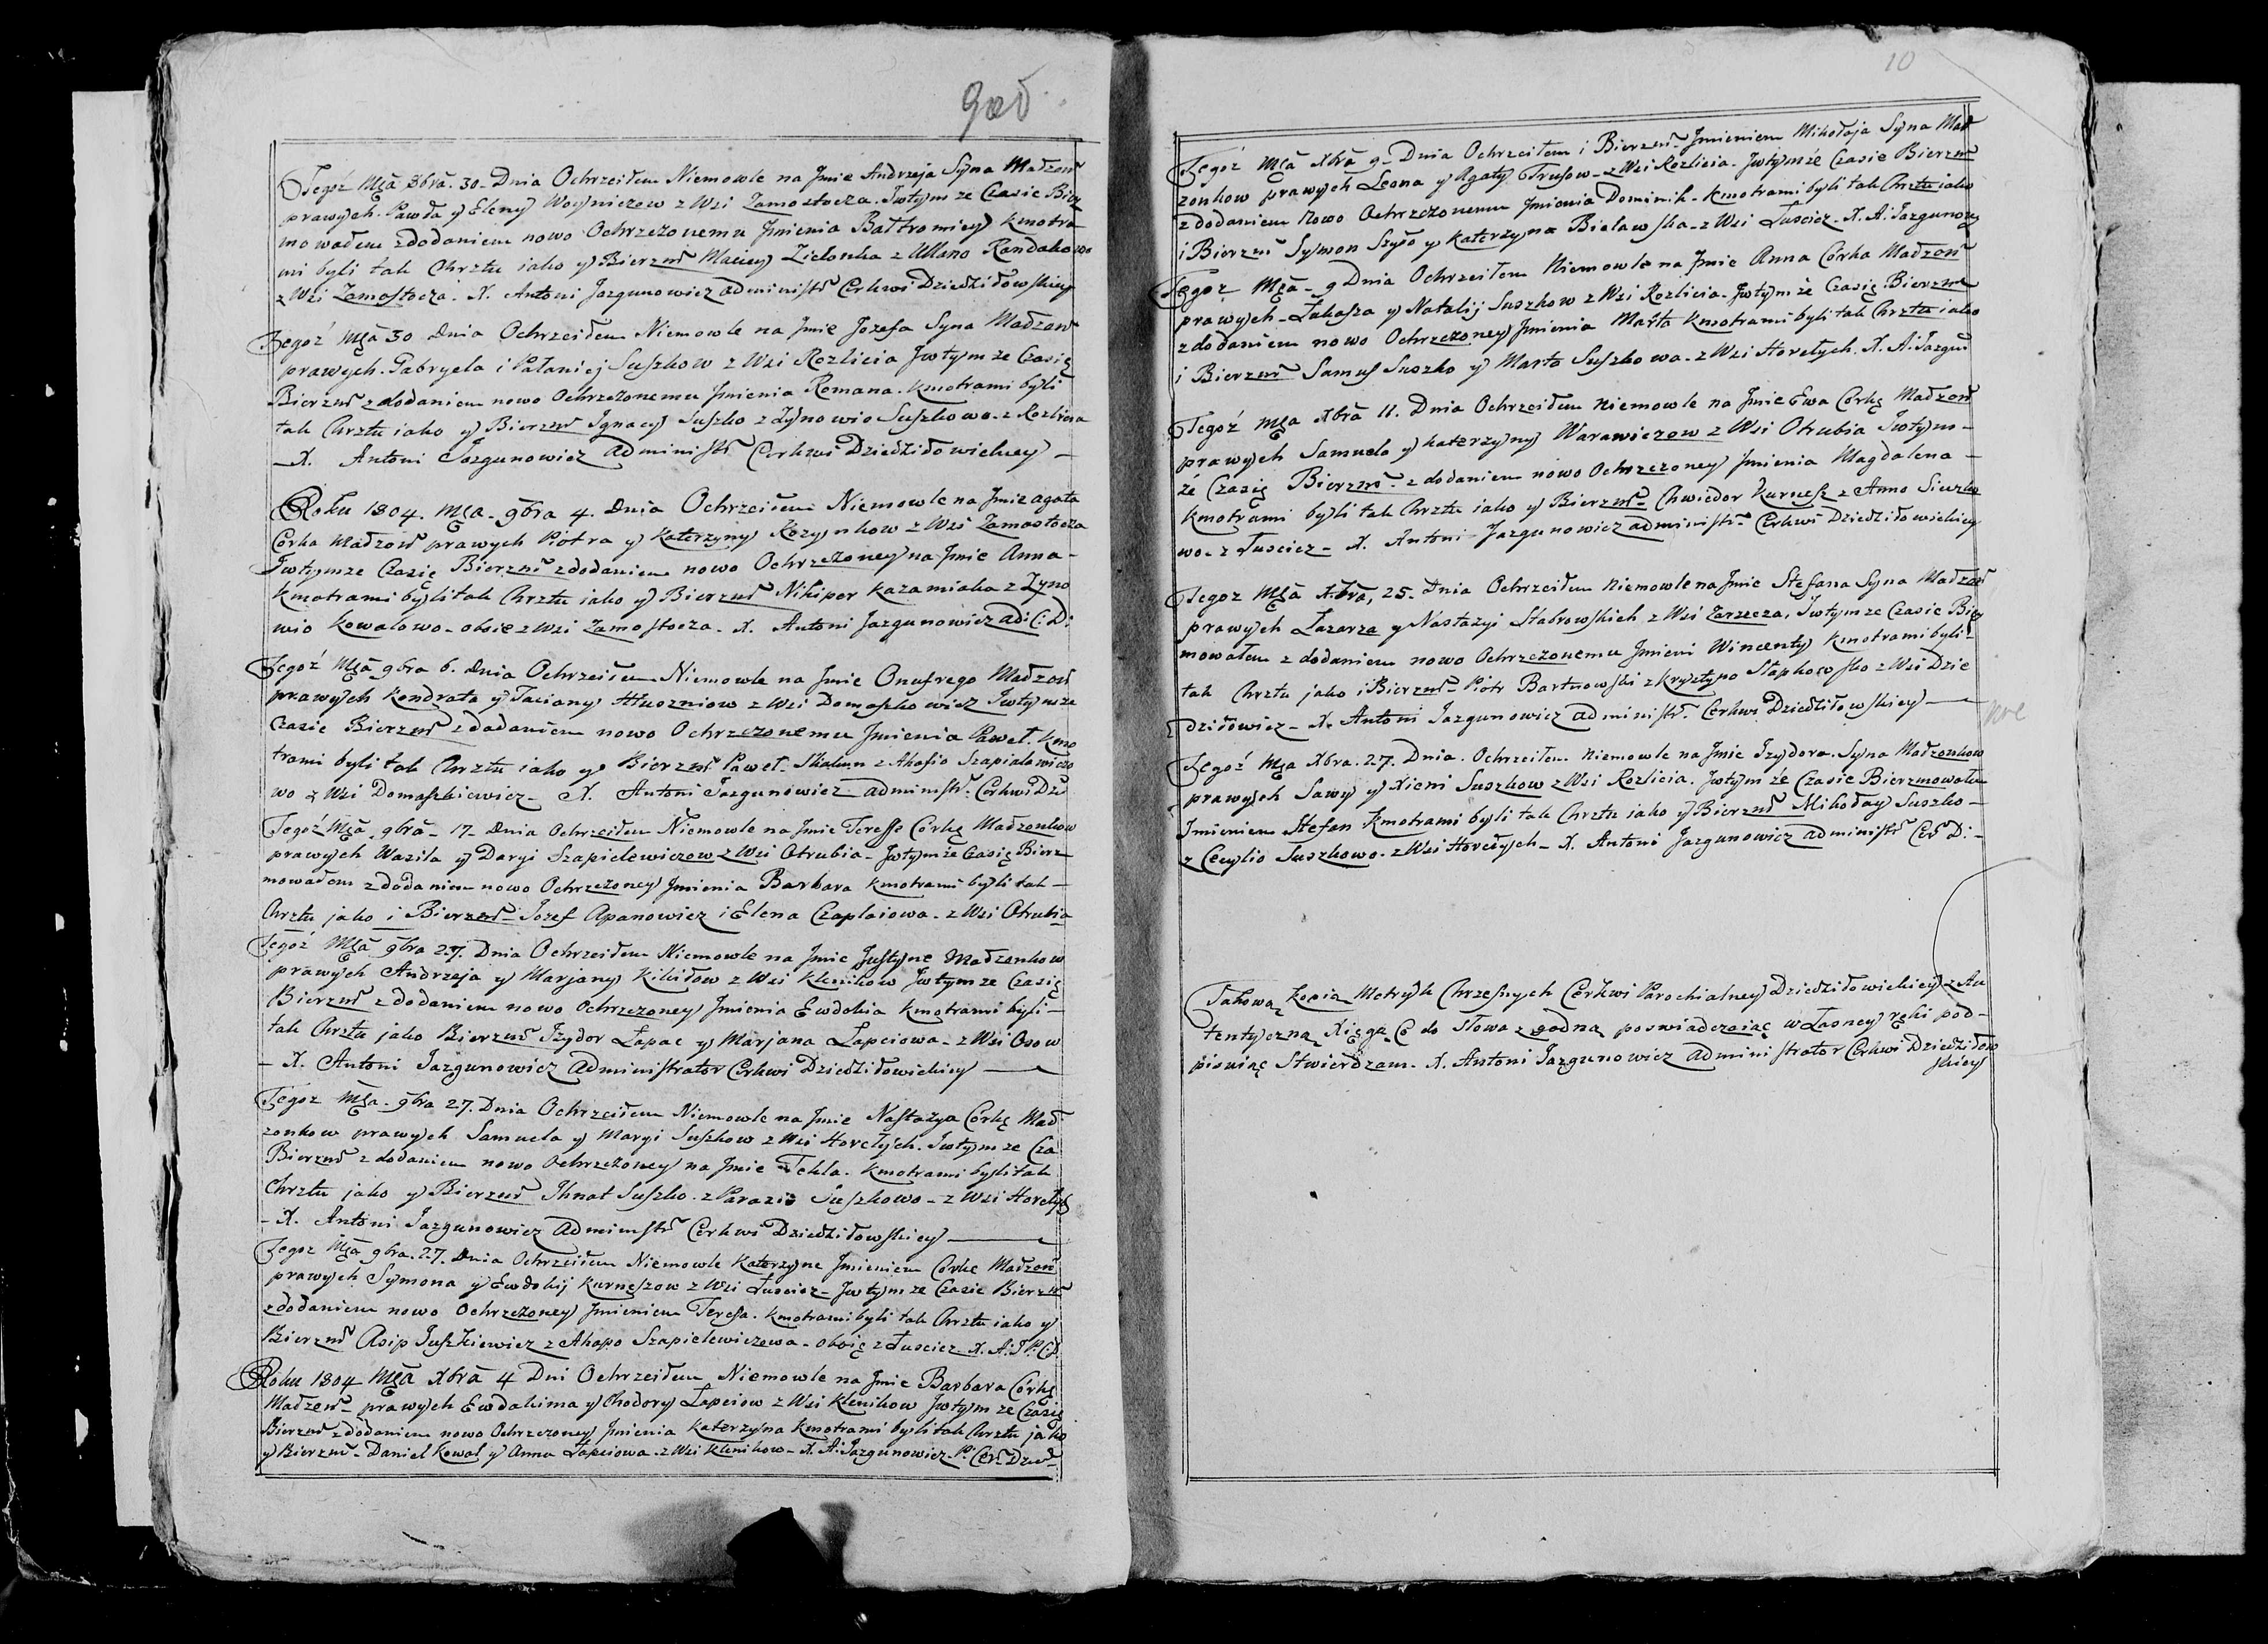 9od
Tegoż Mca 8bra. 30. Dnia Ochrzciłem Niemowle na Jmie Andrzeja Syna Małżoń
prawych. Pawła y Eleny Woyniczow z Wsi Zamostocza. Jwtymże Czasie Bierz
mowałem z dodaniem nowo Ochrzczonemu Jmienia Bałtromiey kmotra
mi byli tak Chrztu iako y Bierzm Maciey Zielonka z Ullano Randakowo
z Wsi Zamostocza. X. Antoni Jazgunowicz administr Cerkwi Dziedziłowskiey
Tegoż Mca 30 Dnia Ochrzciłem Niemowle na Jmie Jozefa Syna Małżon
prawych. Gabryela i Pałaniej Suszkow z Wsi Rozlicia Jwtymże Czasię
Bierzm z dodaniem nowo Ochrzczonemu Jmienia Romana. kmotrami byli
tak Chrztu iako y Bierzm Jgnacy Suszko z Zynowio Suszkowo. z Rozlicia
X. Antoni Jazgunowicz administr Cerkwi Dziedziłowickiey
Roku 1804. Mca. 9bra 4. Dnia Ochrzciłem Niemowle na Jmie agata
Corka Małżow prawych Piotra y Katerzyny Kozynkow z Wsi Zamostocza
Jwtymze Czasię Bierzm z dodaniem nowo Ochrzczoney na Jmie Anna
Kmotrami byli tak Chrztu iako y Bierzm Nikiper Kazamiaka z Zyno
wio Kowalowo. oboie z Wsi Zamostocza. X. Antoni Jazgunowicz ad: C: D:
Tegoż Mca 9bra 6. Dnia Ochrzciłem Niemowle na Jmie Onufrego Małżoń
prawych Kondrata y Taciany Hłuszniow z Wsi Domaszkowicz Jwtymże
Czasie Bierzm z dodaniem nowo Ochrzczonemu Jmienia Paweł. kmo
trami byli tak Chrztu iako y Bierzm Paweł Skakun z Ahafio Szapialewiczo
wo z Wsi Domaszkiewicz. X. Antoni Jazgunowicz administr. Cerkwi Dzd
Tegoż Mca 9bra 17 Dnia Ochrzciłem Niemowle na Jmie Teresse Córkę Małżonkow
prawych Wasila y Daryi Szapielewiczow z Wsi Otrubia. Jwtymże Czasię Bierz
mowałem z dodaniem nowo Ochrzczoney Jmienia Barbara kmotrami byli tak
Chrztu jako i Bierzm Jozef Apanowicz i Elena Czaplaiowa z Wsi Otrubia
Tegoż Mca 9bra 27. Dnia Ochrzciłem Niemowle na Jmie Justyne Małżonkow
prawych Andrzeja y Marjany Kikiłow z Wsi Klenikow Jwtymże Czasię
Bierzm z dodaniem nowo Ochrzczoney Jmienia Ewdokia kmotrami byli
tak Chrztu jako Bierzm Jzydor Łapac y Marjana Łapciowa z Wsi Osow
X. Antoni Jazgunowicz administrator Cerkwi Dziedziłowickiey
Tegoz Mca. 9bra 27. Dnia Ochrzciłem Niemowle na Jmie Nastazya Córkę Mał
zonkow prawych Samuela y Maryi Suszkow z Wsi Horełych. Jwtymże Cza
Bierzm z dodaniem nowo Ochrzczoney na Jmie Tekla. kmotrami byli tak
Chrztu jako y Bierzm Jhnat Suszko z Parazio Suszkowo z Wsi Horełych
X. Antoni Jazgunowicz administr Cerkwi Dziedziłowskiey
Tegoz Mca 9bra. 27. Dnia Ochrzciłem Niemowle Katerzyne Jmieniem Córke Małżoń
prawych Symona y Ewdokij Kurneszow z Wsi Łuscicz. Jwtymże Czasie Bierzm
z dodaniem nowo Ochrzczoney Jmieniem Teresa. kmotrami byli tak Chrztu iako y
Bierzm Asip Juszkiewicz z Ahapo Szapielewiczowa. oboię z Łuscicz. X. A. J. P. C. D.
Roku 1804 Mca Xbra 4 Dni Ochrzciłem Niemowle na Jmie Barbara Córkę
Małżeń prawych Ewdakima y Chodory Łapciow z Wsi Klenikow Jwtymże Czasię
Bierzm z dodaniem nowo Ochrzczoney Jmienia Katerzyna kmotrami byli tak Chrztu jako
y Bierzm. Daniel Kowal y Anna Łapciowa. z Wsi Klenikow. X. A. Jazgunowicz. P. Cer. Dzied
10
Tegoż Mca Xbra 9. Dnia Ochrzciłem i Bierzm. Jmieniem Mikołaja Syna Mał
zonkow prawych Leona y Agaty Trusow z Wsi Rozlicia. Jwtymże Czasie Bierzm
z dodaniem Nowo Ochrzczonemu Jmienia Dominik. kmotrami byli tak Chrztu iako
i Bierzm Symon Szyło y Katerzyna Bielawska z Wsi Łuscicz. X. A. Jazgunow
Tegoz Mca 9 Dnia Ochrzciłem Niemowle na Jmie Anna Córka Małżoń
prawych Łukasza y Natalij Suszkow z Wsi Rozlicia. Jwtymże Czasię Bierzm
z dodaniem nowo Ochrzczoney Jmienia Marta kmotrami byli tak Chrztu iako
i Bierzm Samus Suszko y Marta Suszkowa. z Wsi Horełych. X. A. Jazgun
Tegoż Mca Xbra 11. Dnia Ochrzciłem Niemowle na Jmie Ewa Córkę Małżoń
prawych Samuela y Katerzyny Warawiczow z Wsi Otrubia Jwtym
że Czasię Bierzm z dodaniem nowo Ochrzczoney Jmienia Magdalena
kmotrami byli tak Chrztu iako y Bierzm. Chwiedor Kurnesz z Anno Siuzko
wo. z Łuscicz. X. Antoni Jazgunowicz administr Cerkwi Dziedziłowickiey
Tegoz Mca Xbra, 25. Dnia Ochrzciłem Niemowle na Jmie Stefana Syna Małżoń
prawych Lazarza y Nastazyi Stabrowskich z Wsi Zarzecza, Jwtymże Czasie Bierz
mowałem z dodaniem nowo Ochrzczonemu Jmieni Wincenty kmotrami byli
tak Chrztu jako i Bierzm Piotr Bartnowski z Krystyno Stapkowsko z Wsi Dzie
dziłowicz. X. Antoni Jazgunowicz administr. Cerkwi Dziedziłowskiey
Tegoż Mca Xbra. 27. Dnia. Ochrzciłem Niemowle na Jmie Jzydora. Syna Małżonkow
prawych Sawy y Xieni Suszkow z Wsi Rozlicia. Jwtymże Czasie Bierzmowałem
Jmieniem Stefan kmotrami byli tak Chrztu iako y Bierzm Mikołay Suszko
z Cecylio Suszkowo. z Wsi Horełych. X. Antoni Jazgunowicz administr Cer D:
Takową kopią Metryk Chrzesnych Cerkwi Parochialney Dziedziłowickiey z Au
tentyczną Xięgą Co do Słowa zgodną poswiadczaiąc własney ręki pod
pisuiąc Stwierdzam. X. Antoni Jazgunowicz administrator Cerkwi Dziedziłow
skiey